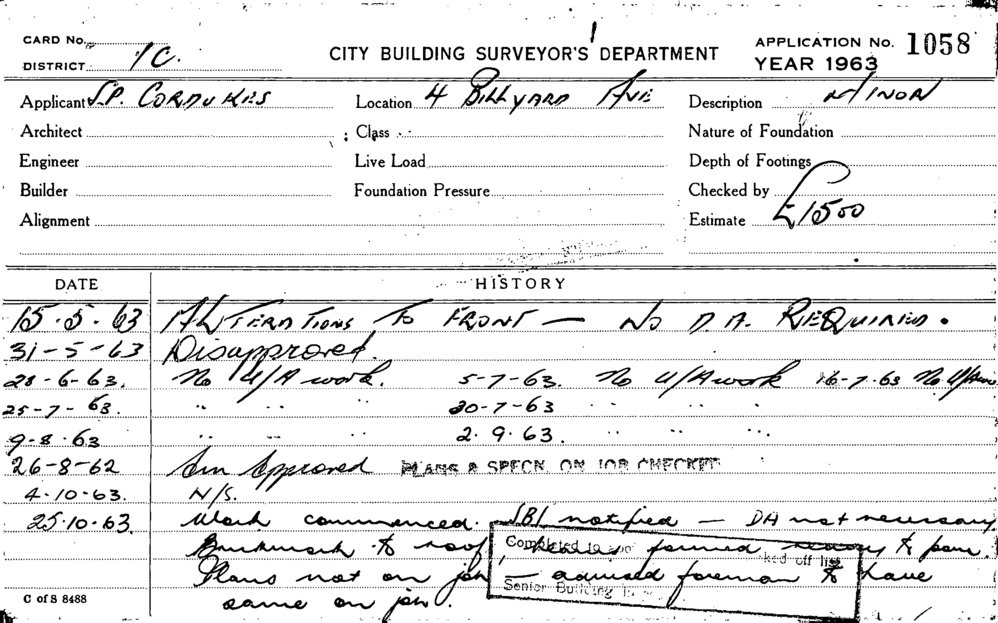 CARD No.
DISTRICT 1C.
CITY BUILDING SURVEYOR'S DEPARTMENT
APPLICATION No. 1058
YEAR 1963
Applicant S.P. CORDUKES Location 4 BILLYARD AVE Description MINOR
Architect Class Nature of Foundation
Engineer Live Load Depth of Footings
Builder Foundation Pressure Checked by
Alignment Estimate £1500
DATE HISTORY
15.5.63 ALTERATIONS TO FRONT — NO D.A. REQUIRED.
31-5-63 Disapproved.
28-6-63. No U/A work. 5-7-63. No U/A work 16-7.63 No U/A
25-7-63. " " " 30-7-63 " " "
9-8.63 " " " 2.9.63. " " "
26-8-62 Approved PLANS & SPECN. ON JOB CHECKED
4-10-63. N/S.
25.10.63. Work commenced. SBI notified — DA not necessary
Brickwork to roof, formed ready to pour
Plans not on job — advised foreman to have
same on job.
Completed to
ked off list
Senior Building
C of S 8488